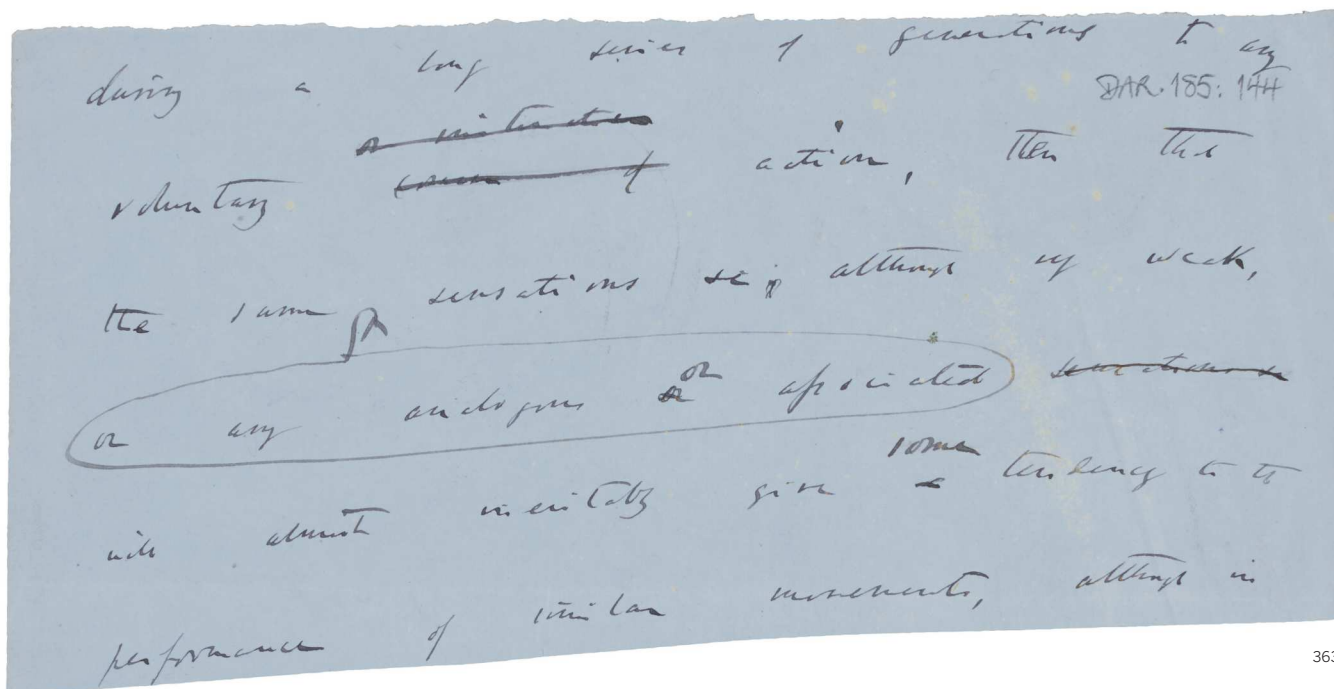 during a long series of generations to any
DAR. 185: 144
voluntary action, then the
the same sensations &c, although very weak,
or any analogous or associated
will almost inevitably give some tendency to the
performance of similar movements, although in
363